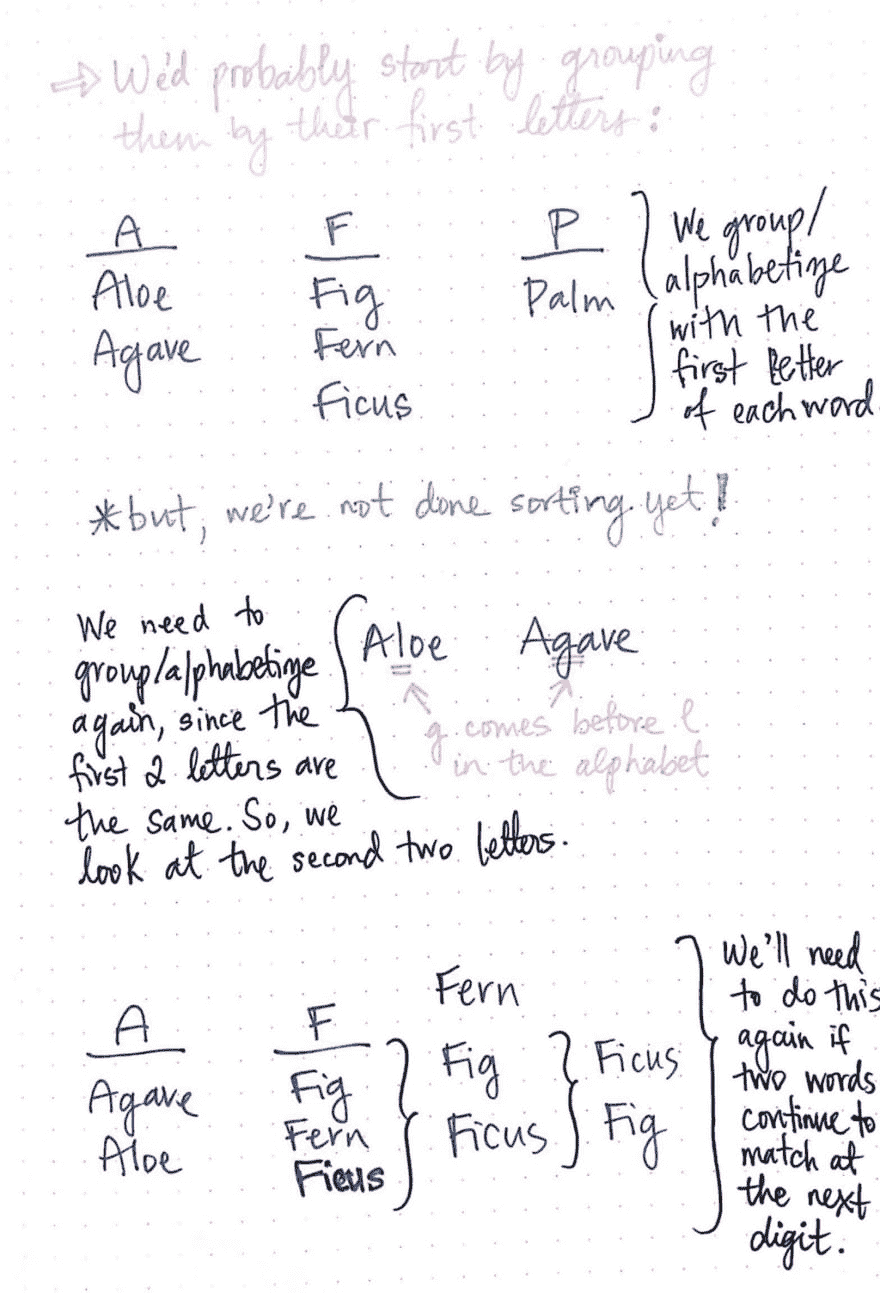 ⇒ We'd probably start by grouping
them by their first letters:
A
Aloe
Agave
F
Fig
Fern
Ficus
P
Palm
We group/
alphabetize
with the
first letter
of each word
*but, we're not done sorting yet!
We need to
group/alphabetize
again, since the
first 2 letters are
the same. So, we
look at the second two letters.
Aloe Agave
g comes before l
in the alphabet
A
Agave
Aloe
F
Fig
Fern
Ficus
Fern
Fig
Ficus
Ficus
Fig
We'll need
to do this
again if
two words
continue to
match at
the next
digit.